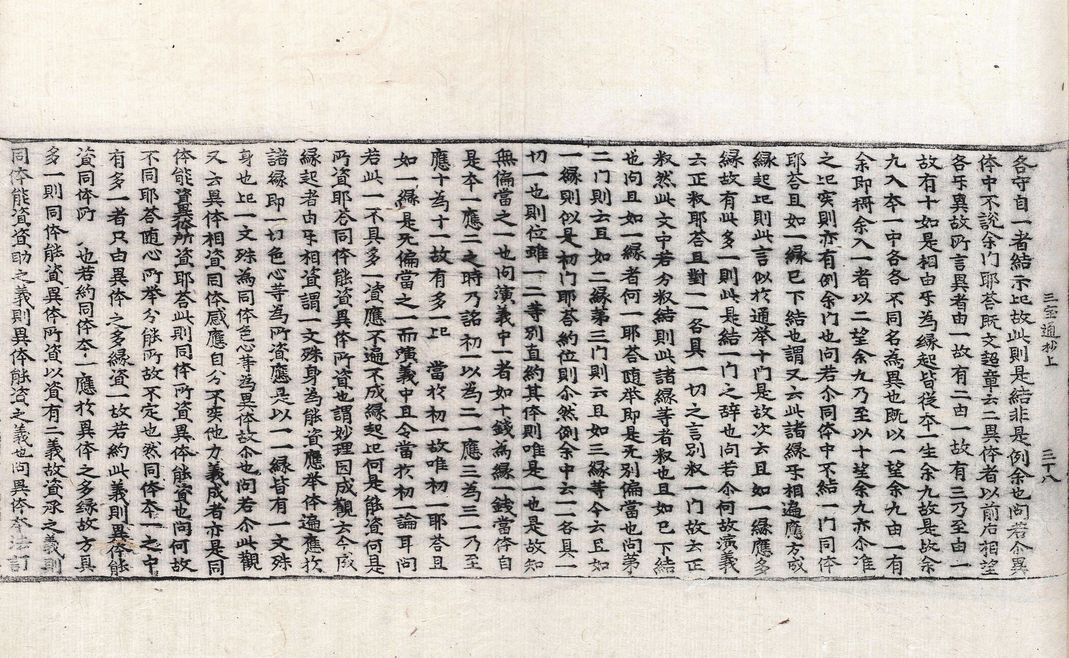 三宝通抄上　三十八
各守自一者結示圯故此則是結非是例余也問若尒異
体中不說余门耶荅既文超章云二異体者以前后相望
各㸦異故所言異者由一故有二由一故有三乃至由一
故有十如是相由㸦為緣起皆従夲一生余九故是故余
九入夲一中各各不同名為異也既以一望余九由一有
余即将余入一者以二望余九乃至以十望余九亦尒准
之圯実則亦有例余门也问若尒同体中不結一门同体
耶荅且如一緣已下結也謂又云此諸緣㸦相遍應方成
緣起圯則此言似扵通举十门是故次云且如一緣應多
緣故有此多一則此是結一门之辞也问若尒何故演義
云正叙耶荅且對一一各具一切之言别叙一门故云正
叙然此文中若分叙結則此諸緣等者叙也且如已下結
也问且如一緣者何一耶荅随举即是无别偏當也问第
二门則云且如二緣第三门則云且如三緣等今云且如
一緣則似是初门耶荅約位則尒然例余中云一一各具一
切一也則位雖一二等别直約其体則唯是一也是故知
無偏當之一也问演義中一者如十錢為緣一錢當体自
是夲一應二之時乃詺初一以為二一應三為三一乃至
應十為十一故有多一圯　當扵初一故唯初一耶荅且
如一緣是无偏當之一而演義中且今當扵初一論耳问
若此一不具多一資應不遍不成緣起圯何是能資何是
所資耶荅同体能資異体所資也謂妙理因成觀云今成
緣起者由㸦相資謂一文殊身為能資應举体遍應扵
諸緣即一切色心等為所資應是以一一緣皆有一文殊
身也圯一文殊為同体色心等為異体故尒也问若尒此觀
又云異体相資同体感應自分不突他力義成者亦是同
体能資異体所資耶荅此則同体所資異体能資也问何故
不同耶荅随心所举分能所故不定也然同体夲一之中
有多一者只由異体之多緣資一故若約此義則異体能
資同体所　也若約同体夲一應扵異体之多緣故方具
多一則同体能資異体所資以資有二義故資承之義則
同体能資資助之義則異体能資之義也问異体夲法訂